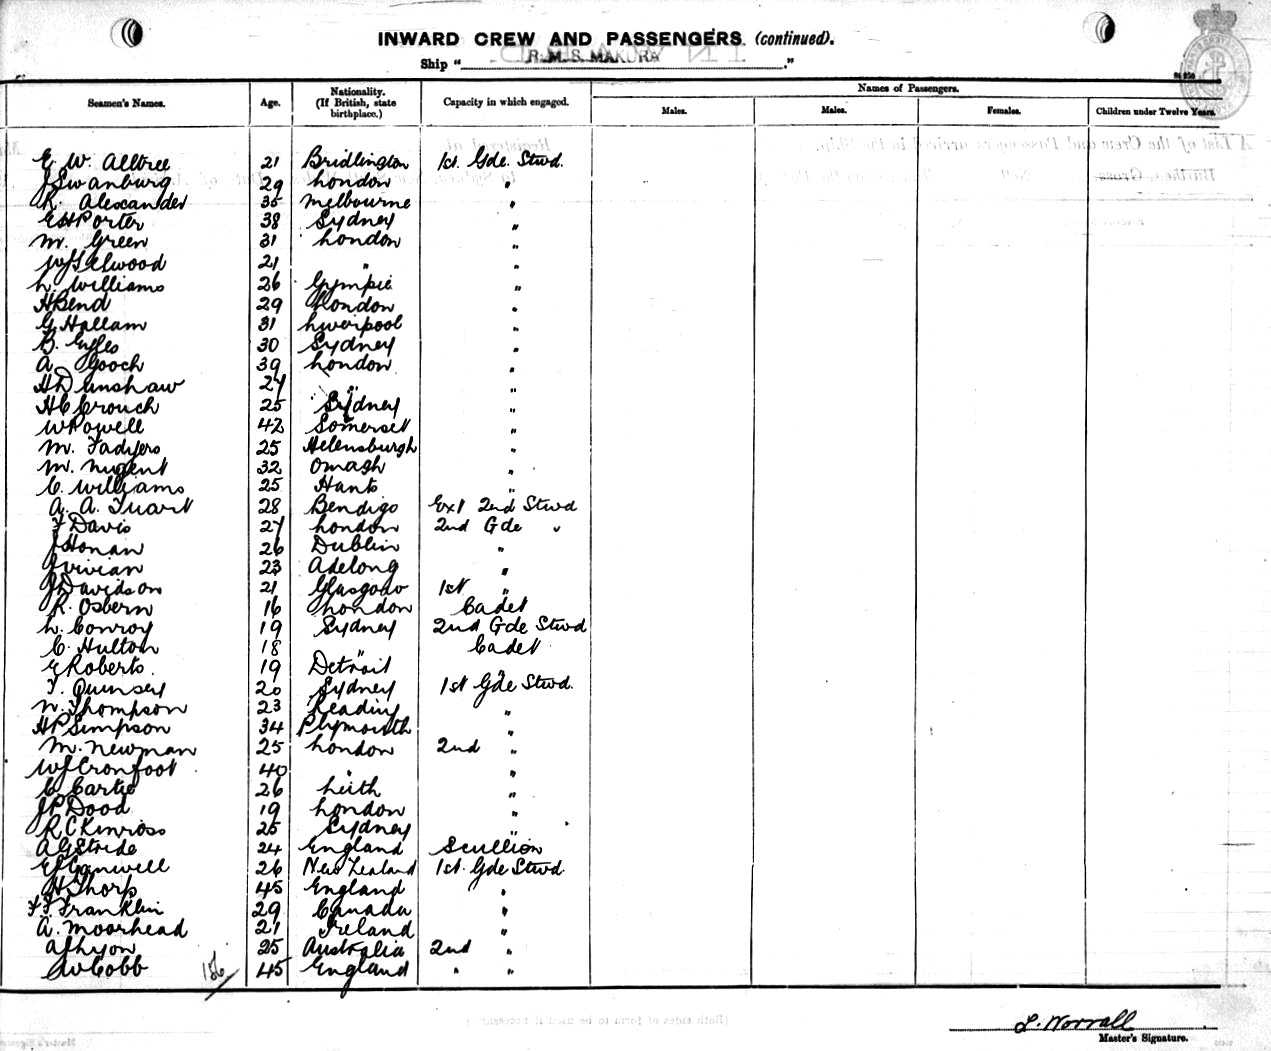 INWARD CREW AND PASSENGERS (continued).
Ship "R.M.S. MAKURA."
Names of Passengers.
Seamen's Names. Age. Nationality. (If British, state birthplace.) Capacity in which engaged. Males. Males. Females. Children under Twelve Years.
E. W. Alltree 21 Bridlington 1st. Gde. Stwd.
J Swanburg 29 London "
R. Alexander 35 Melbourne "
E H Porter 38 Sydney "
M. Green 31 London "
W J Selwood 21 " "
L. Williams 26 Gympie "
H Bend 29 London "
G Hallam 31 Liverpool "
B. 30 Sydney "
A Gooch 39 London "
H Denshaw 27 " "
H C Crouch 25 Sydney "
W Powell 42 Somerset "
M. Fadyers 25 Helensburgh "
M. Nugent 32 Omagh "
C. Williams 25 Hants "
A. A. Tuart 28 Bendigo Ext 2nd Stwd
F Davis 27 London 2nd Gde "
J Honan 26 Dublin "
J Vivian 23 Adelong "
J Davidson 21 Glasgow 1st "
R. Osbern 16 London Cadet
L. Conroy 19 Sydney 2nd Gde Stwd
C. Hulton 18 " Cadet
E Roberts. 19 Detroit "
T. Quinsey 20 Sydney 1st Gde Stwd.
N. Thompson 23 Reading "
H P Simpson 34 Plymouth "
M. Newman 25 London 2nd "
W J Cronfoot 40 " "
C Cartie 26 Leith "
J P Dood 19 London "
R C Kinross 25 Sydney "
A G Stride 24 England Scullion
E J Canwell 26 New Zealand 1st. Gde Stwd.
H Thorp 45 England "
F. F. Franklin 29 Canada "
A. Moorhead 21 Ireland "
A F Lyon 25 Australia 2nd "
W Cobb 45 England " "
L. Worrall
Master's Signature.
(Both sides of form to be used if necessary.)